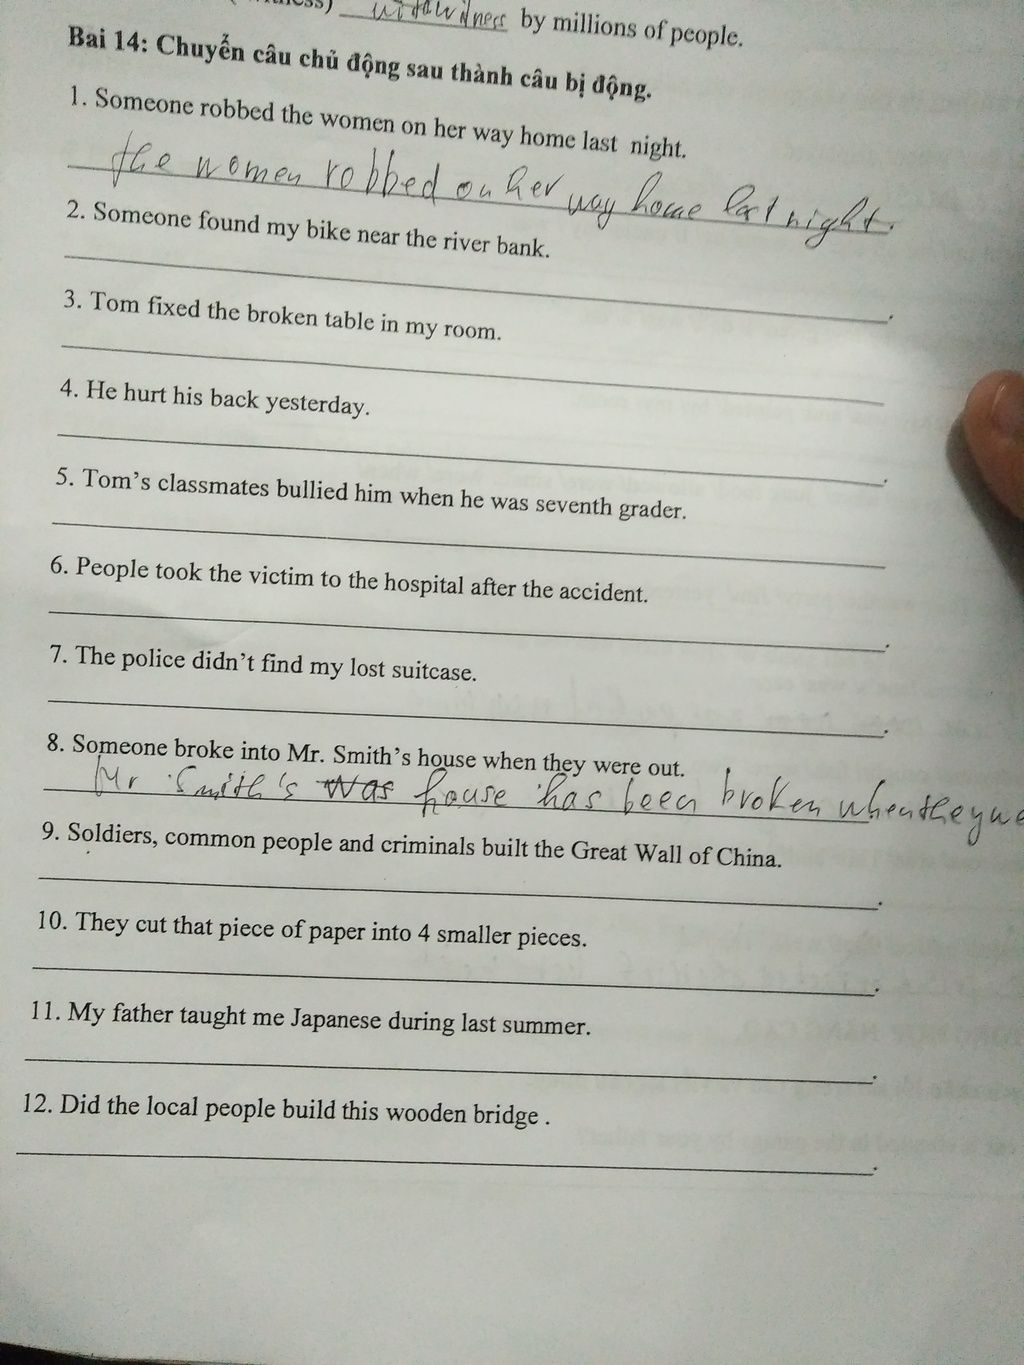 by millions of people.
Bai 14: Chuyển câu chủ động sau thành câu bị động.
1. Someone robbed the women on her way home last night.
the women robbed on her way home last night.
2. Someone found my bike near the river bank.
3. Tom fixed the broken table in my room.
4. He hurt his back yesterday.
5. Tom's classmates bullied him when he was seventh grader.
6. People took the victim to the hospital after the accident.
7. The police didn't find my lost suitcase.
8. Someone broke into Mr. Smith's house when they were out.
Mr Smith's was house has been broken when they we
9. Soldiers, common people and criminals built the Great Wall of China.
10. They cut that piece of paper into 4 smaller pieces.
11. My father taught me Japanese during last summer.
12. Did the local people build this wooden bridge .